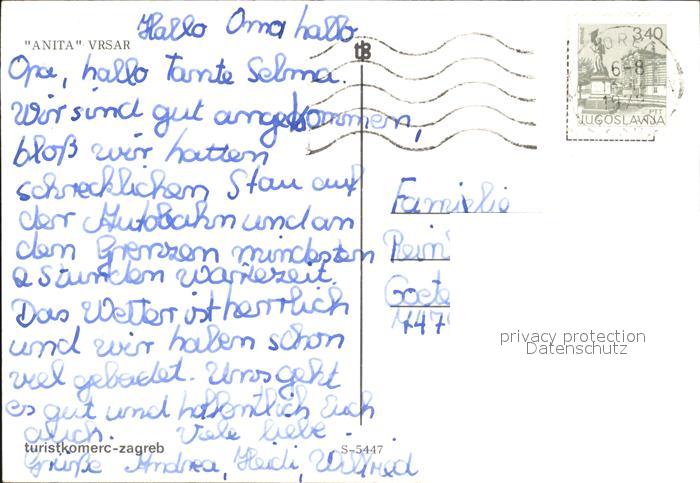 Hallo Oma, hallo
"ANITA" VRSAR
Opa, hallo Tante Selma.
Wir sind gut angekommen,
bloß wir hatten
schrecklichen Stau auf
der Autobahn und an
den Grenzen mindesten
2 Stunden Wartezeit.
Das Wetter ist herrlich
und wir haben schon
viel gebadet. Uns geht
es gut und hoffentlich Euch
auch. Viele liebe
Grüße Andrea, Heidi, Wilfried
turistkomerc-zagreb
S-5447
tB
3.40
6-8
JUGOSLAVIJA
Familie
Goete
747
privacy protection
Datenschutz